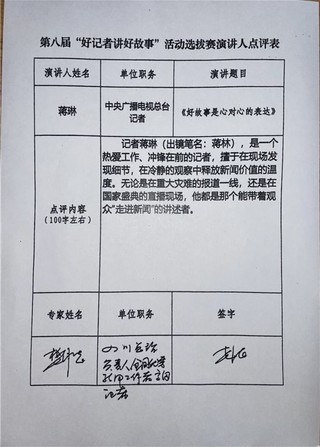 第八届“好记者讲好故事”活动选拔赛演讲人点评表
演讲人姓名 单位职务 演讲题目
蒋琳 中央广播电视总台 《好故事是心对心的表达》
记者
点评内容
(100字左右)
记者蒋琳（出镜笔名：蒋林），是一个
热爱工作、冲锋在前的记者，擅于在现场发
现细节，在冷静的观察中释放新闻价值的温
度。无论是在重大灾难的报道一线，还是在
国家盛典的直播现场，他都是那个能带着观
众“走进新闻”的讲述者。
专家姓名 单位职务 签字
四川